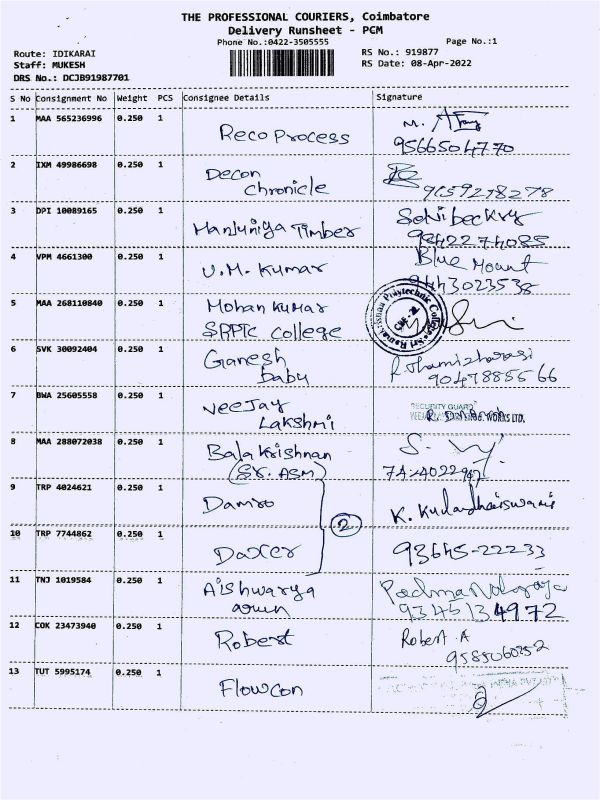 THE PROFESSIONAL COURIERS, Coimbatore
Delivery Runsheet - PCM
Phone No.:0422-3505555 Page No.:1
Route: IDIKARAI RS No.: 919877
Staff: MUKESH RS Date: 08-Apr-2022
DRS No.: DCJB91987701
S No Consignment No Weight PCS Consignee Details Signature
1 MAA 565236996 0.250 1 Reco Process M.
9566504770
2 IXM 49986698 0.250 1 Decon
chronicle 9659278278
3 DPI 10089165 0.250 1 Manjuniya Timber
9842274085
4 VPM 4661300 0.250 1 U.M. Kumar Blue Mount
9443023538
5 MAA 268110840 0.250 1 Mohan Kumar
SRPTC College
Sri Ramakrishna Polytechnic College
CBE
6 SVK 30092404 0.250 1 Ganesh
babu 9047885566
7 BWA 25605558 0.250 1 VeeJay
Lakshmi
SECURITY GUARD
WORKS LTD.
8 MAA 288072038 0.250 1 Bala Krishnan
(Sr. ASM)
9 TRP 4024621 0.250 1 Damro K.
2
10 TRP 7744862 0.250 1 Daxer 93645-22233
11 TNJ 1019584 0.250 1 Aishwarya
arun 9345134972
12 COK 23473940 0.250 1 Robert Robert A
9585060352
13 TUT 5995174 0.250 1 Flowcon